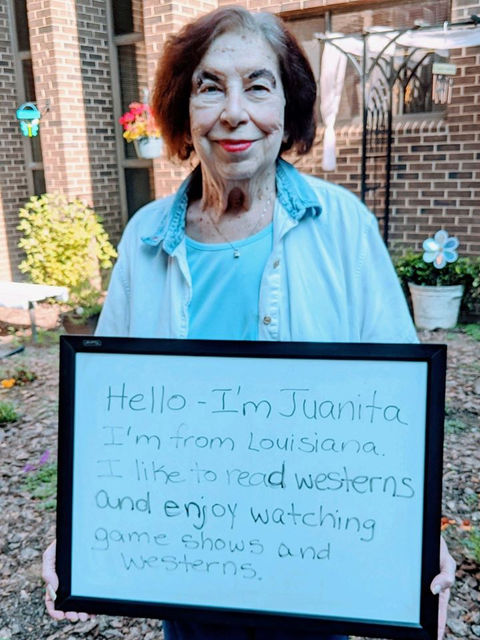 Hello - I'm Juanita
I'm from Louisiana.
I like to read westerns
and enjoy watching
game shows and
westerns.